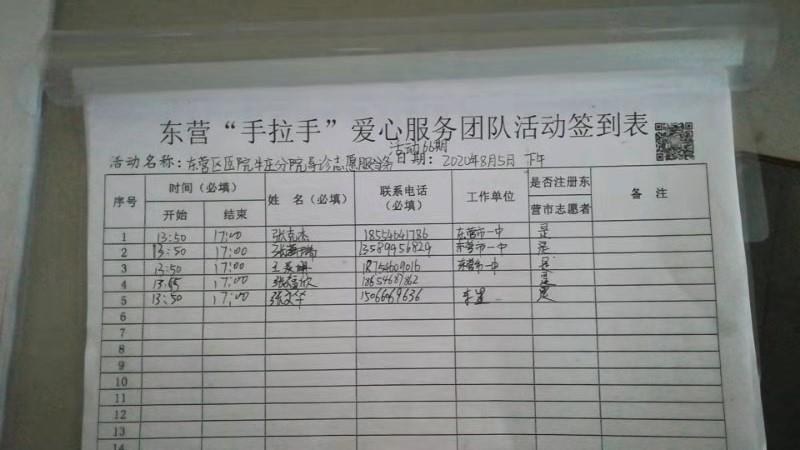 东营“手拉手”爱心服务团队活动签到表
活动66期
活动名称：东营区医院牛庄分院导诊志愿服务 日期：2020年8月5日 下午
序号 时间（必填） 姓 名（必填） 联系电话（必填） 工作单位 是否注册东营市志愿者 备 注
开始 结束
1 13:50 17:00 张克杰 18554641786 东营市一中 是
2 13:50 17:00 13589956829 东营市一中 是
3 13:50 17:00 18754609016 东营市一中 是
4 17:00 18654687862 是
5 13:50 17:00 张文华 15066469636 是
6
7
8
9
10
11
12
13
14